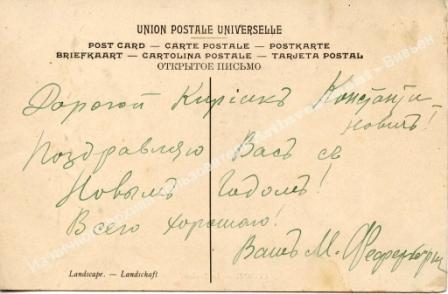 UNION POSTALE UNIVERSELLE
POST CARD — CARTE POSTALE — POSTKARTE
BRIEFKAART — CARTOLINA POSTALE — TARJETA POSTAL
ОТКРЫТОЕ ПИСЬМО
Дорогой Кирикъ Константи-
новичъ!
Поздравляю Васъ съ
Новымъ Годомъ!
Всего хорошаго!
Вашъ М.
Landscape. — Landschaft